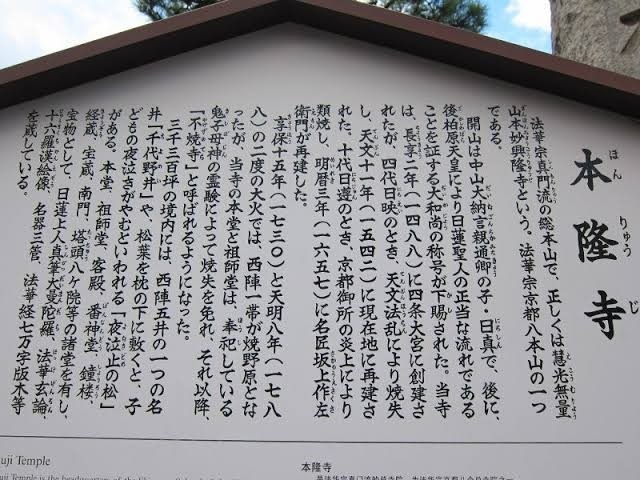 本隆寺
ほんりゅうじ
法華宗真門流の総本山で、正しくは慧光無量
山本妙興隆寺という。法華宗京都八本山の一つ
である。
開山は中山大納言親通卿の子・日真で、後に、
後柏原天皇により日蓮聖人の正当な流れである
ことを証する大和尚の称号が下賜された。当寺
は、長享二年（一四八八）に四条大宮に創建さ
れたが、四代日映のとき、天文法乱により焼失
し、天文十一年（一五四二）に現在地に再建さ
れた。十代日遵のとき、京都御所の炎上により
類焼し、明暦三年（一六五七）に名匠坂上作左
衛門が再建した。
享保十五年（一七三〇）と天明八年（一七八
八）の二度の大火では、西陣一帯が焼野原とな
ったが、当寺の本堂と祖師堂は、奉祀している
鬼子母神の霊験によって焼失を免れ、それ以降、
「不焼寺」と呼ばれるようになった。
三千三百坪の境内には、西陣五井の一つの名
井「千代野井」や、松葉を枕の下に敷くと、子
どもの夜泣きがやむといわれる「夜泣止の松」
がある。本堂、祖師堂、客殿、番神堂、鐘楼、
経蔵、宝蔵、南門、塔頭八ケ院等の諸堂を有し、
宝物として、日蓮上人真筆大曼陀羅、法華玄論、
十六羅漢絵像、名器三管、法華経七万字版木等
を蔵している。
uji Temple
本隆寺